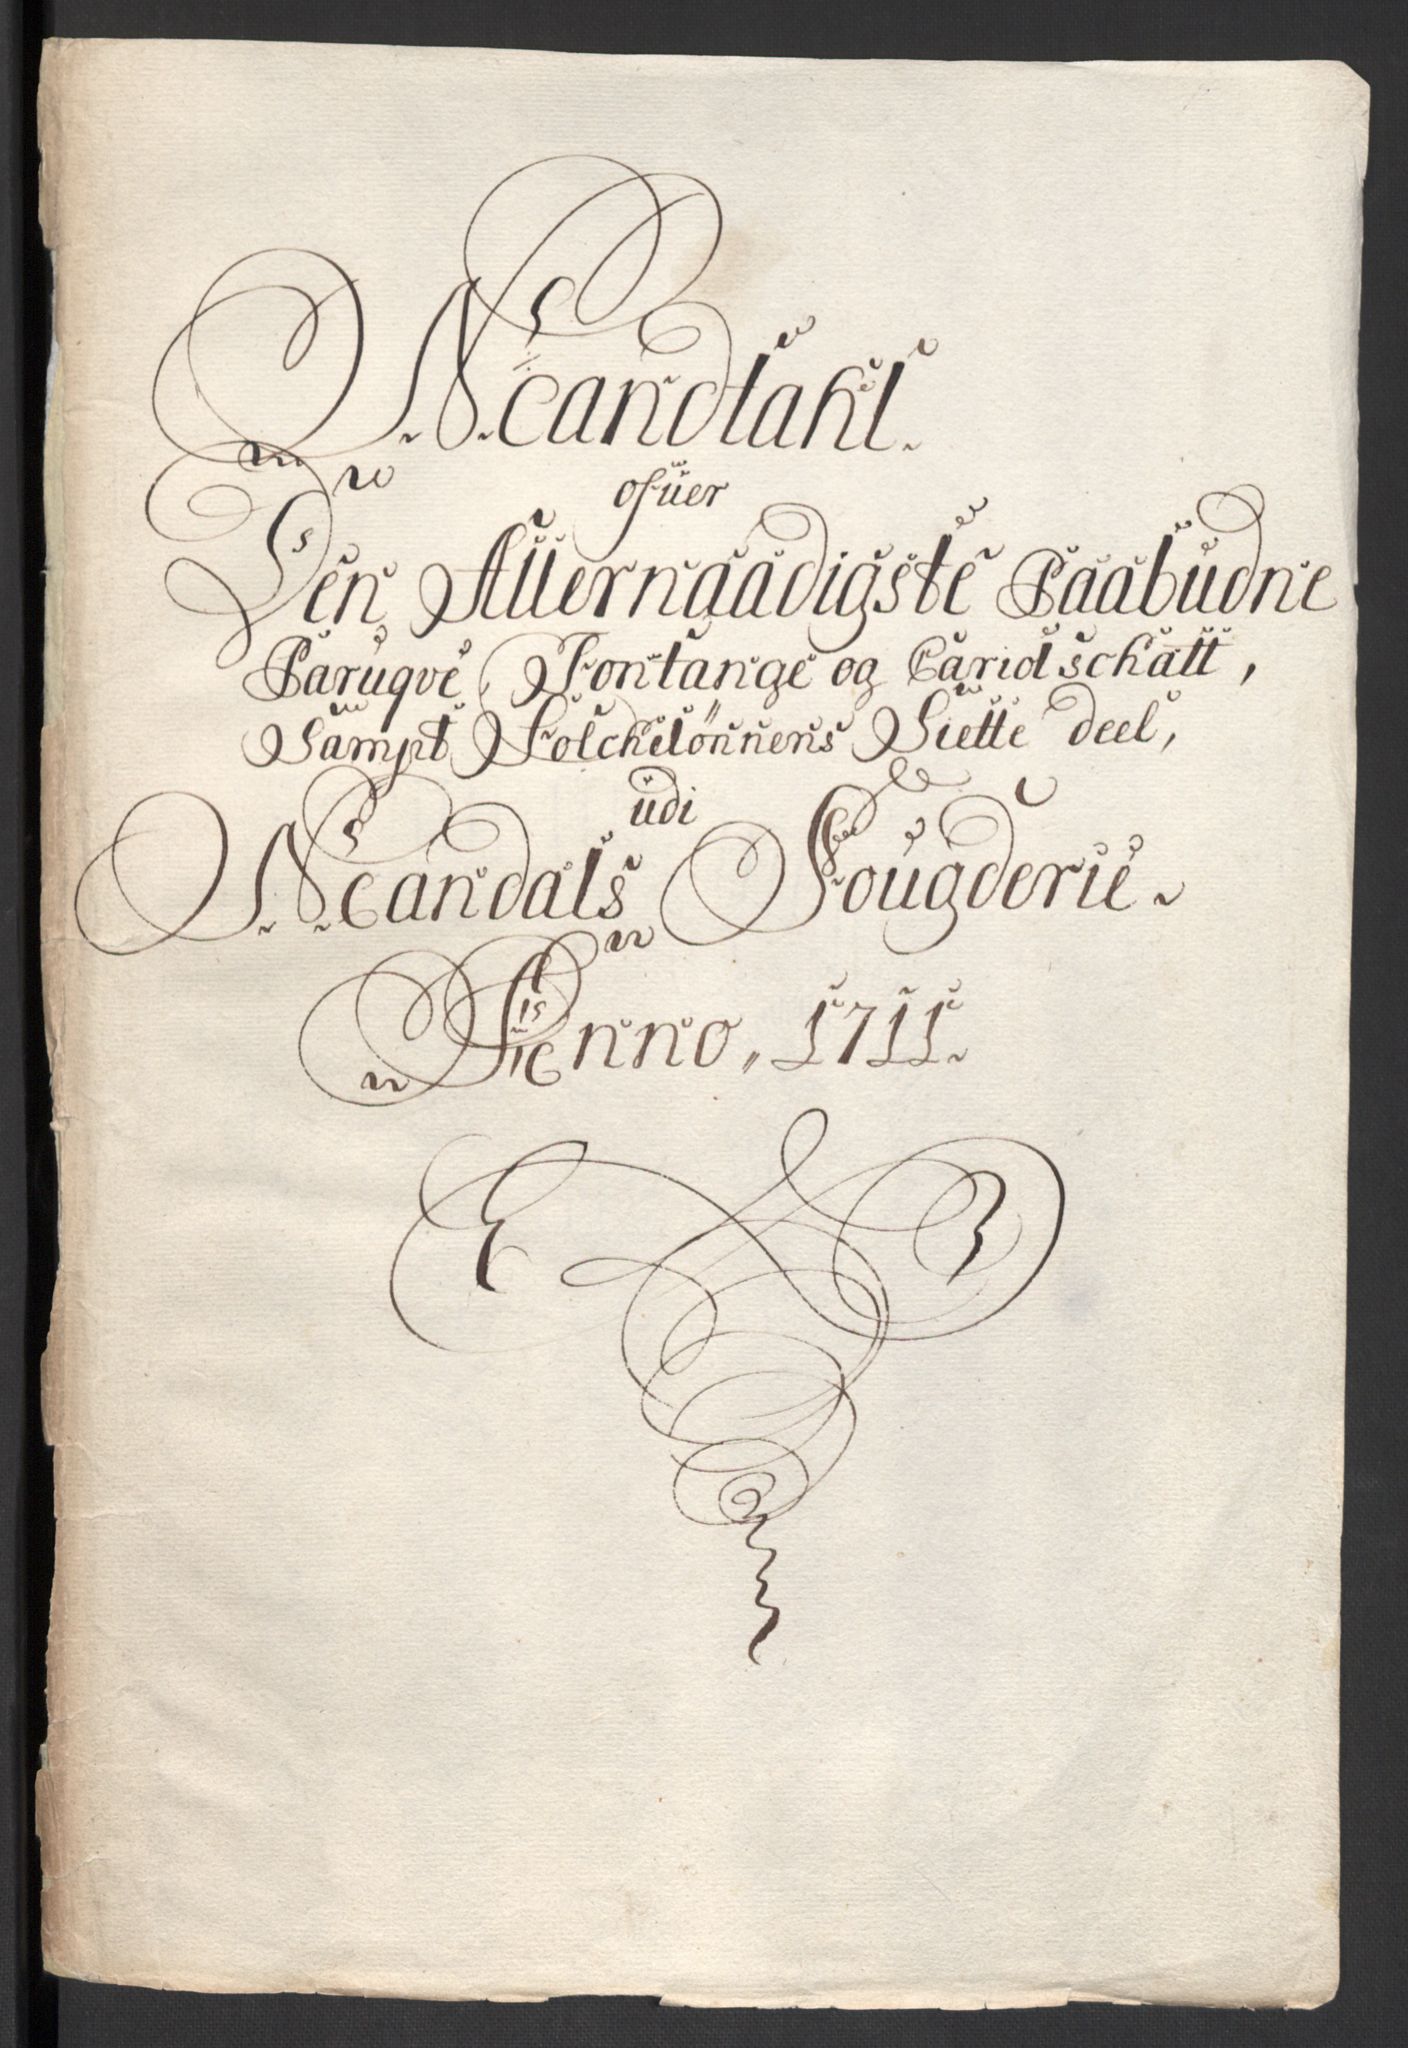 Mandtahl
ofüer
Den Allernaadigste Paabudne
Paruqve, Fontange og Cariol schatt,
Sampt Folchelönnens Siette deel,
udi
Mandals Fougderie
Anno. 1711.